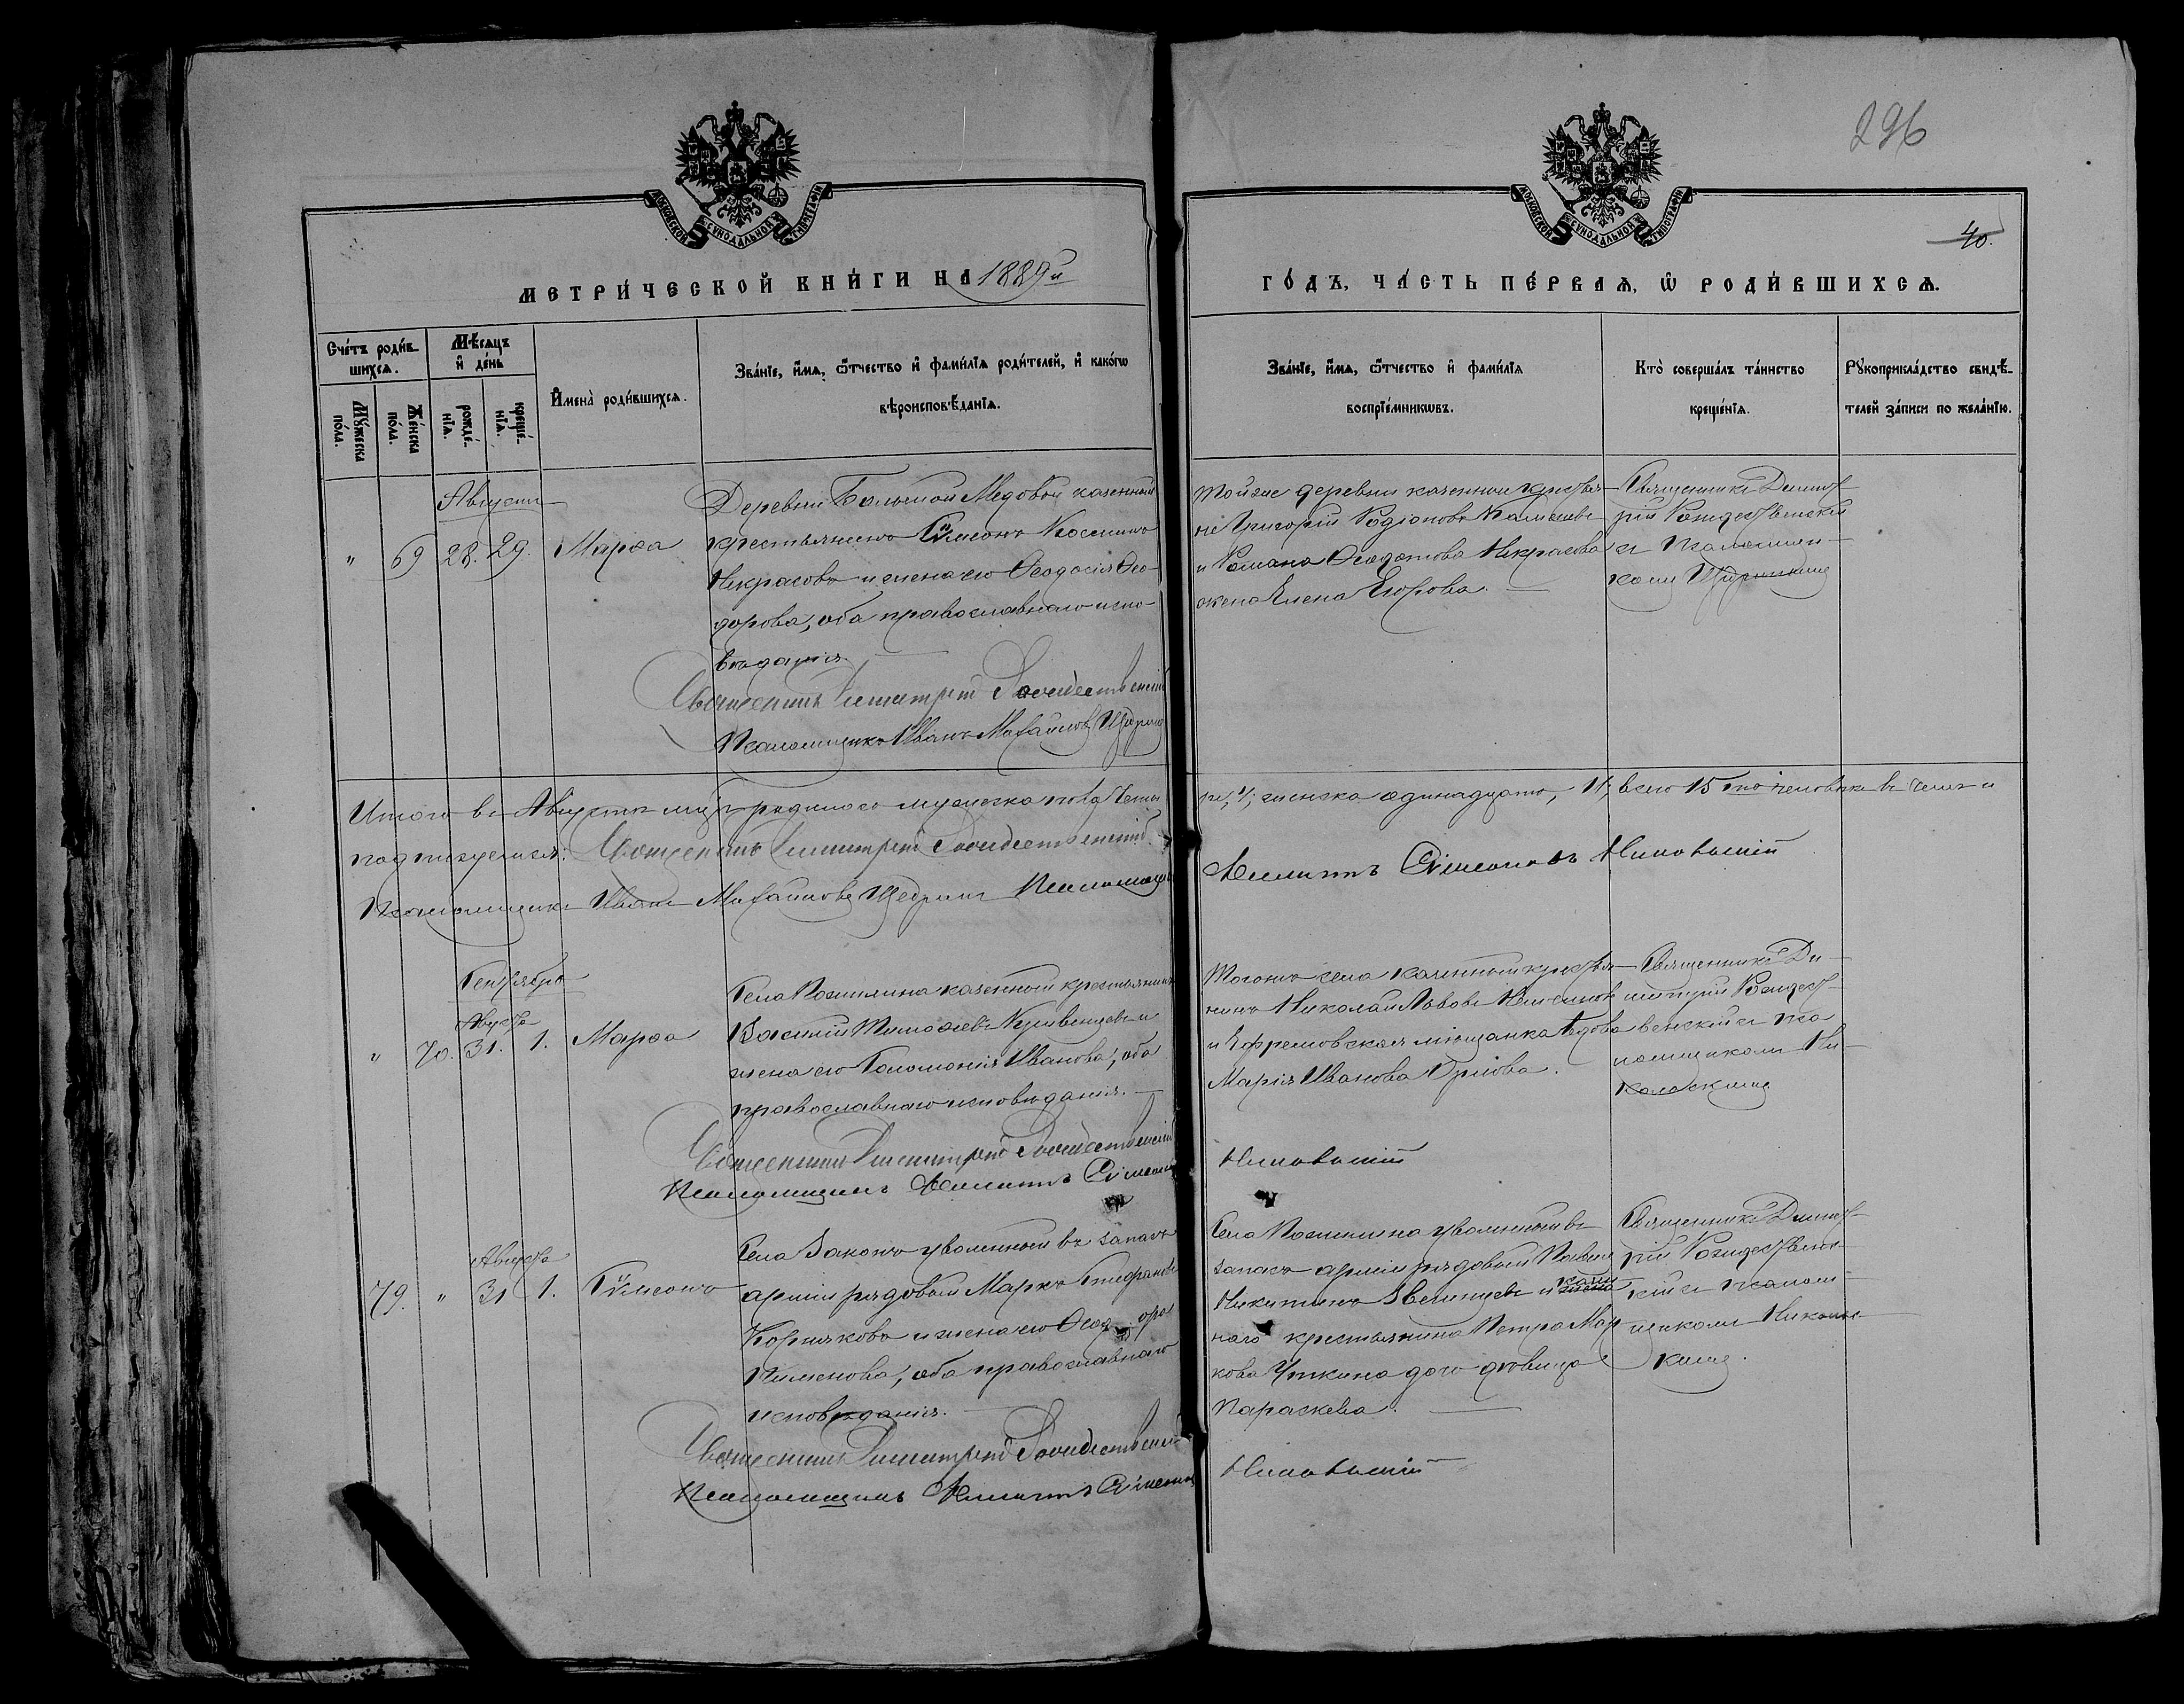 296
40.
МОСКОВСКОЙ СѴНОДАЛЬНОЙ ТИПОГРАФІИ
МОСКОВСКОЙ СѴНОДАЛЬНОЙ ТИПОГРАФІИ
МЕТРИ́ЧЕСКОЙ КНИ́ГИ НА 1889й
ГО́ДЪ, ЧА́СТЬ ПЕ́РВАѦ, Ѿ РОДИ́ВШИХСѦ.
Сче́тъ роди́в-
шихсѧ.
Мꙋ́жеска по́ла.
Же́нска по́ла.
Мѣ́сѧцъ и҆ де́нь
рожде́-нїѧ.
креще́-нїѧ.
И҆мена̀ роди́вшихсѧ.
Зва́нїе, и҆́мѧ, ѻ҆́тчество и҆ фами́лїѧ роди́телей, и҆ како́гѡ
вѣроисповѣ́данїѧ.
Зва́нїе, и҆́мѧ, ѻ҆́тчество и҆ фами́лїѧ
воспрїе́мникѡвъ.
Кто̀ соверша́лъ та́инство
креще́нїѧ.
Рꙋкоприкла́дство свидѣ́-
телей за́писи по жела́нїю.
Августъ
" 69 28. 29. Марѳа
Деревни Большой Медовой казенный
крестьянинъ Сѵмеонъ Косминъ
Некрасовъ и жена его Ѳеодосія Ѳео-
дорова, оба православнаго испо-
вѣданія.
Священникъ Димитрій Рождественскій
Псаломщикъ Иванъ Михайловъ Щедринъ
Тойже деревни казенный крестья-
не Григорій Родіоновъ
и Романа Ѳеодотова Некрасова
жена Елена Егорова.
Священникъ Димит-
рій Рождественскій
съ Псаломщи-
комъ Щедринымъ
Итого въ Августѣ мцѣ родилось мужеска пола четы
ре, 4, женска одинадцать, 11, всего 15ть человѣкъ въ чемъ и
подписуемся: Священникъ Димитрій Рождественскій.
Псаломщикъ Иванъ Михайловъ Щедринъ Псаломщикъ
Сѵмеоновъ
Сентябрь
Августа
" 70. 31. 1. Марѳа
Села казенный крестьянинъ
Василій Тимоѳеевъ и
жена его Соломонія Иванова, оба
православнаго исповѣданія.
Священникъ Димитрій Рождественскій
Псаломщикъ Сѵмеоновъ
Тогожъ села казенный крестья-
нинъ Николай Львовъ
и Ефремовская мѣщанка вдова
Марія Иванова Орлова.
Священникъ Ди-
митрій Рождест-
венскій съ пса
ломщикомъ Ни-
кольскимъ
Августа
79. " 31 1. Сѵмеонъ
Села Закопъ уволенный въ запасъ
арміи рядовый Марко Стефановъ
Корняковъ и жена его Ѳеод ора
Пименова, оба православнаго
исповѣданія.
Священникъ Димитрій Рождественскій
Псаломщикъ Сѵмеоновъ
Села уволенный въ
запасъ арміи рядовый Павелъ
Никитинъ Звегинцевъ и казен
наго крестьянина Петра Мар
кова Уткина дочь дѣвица
Параскева.
Священникъ Димит-
рій Рождествен-
скій съ псалом-
щикомъ Николь-
скимъ.